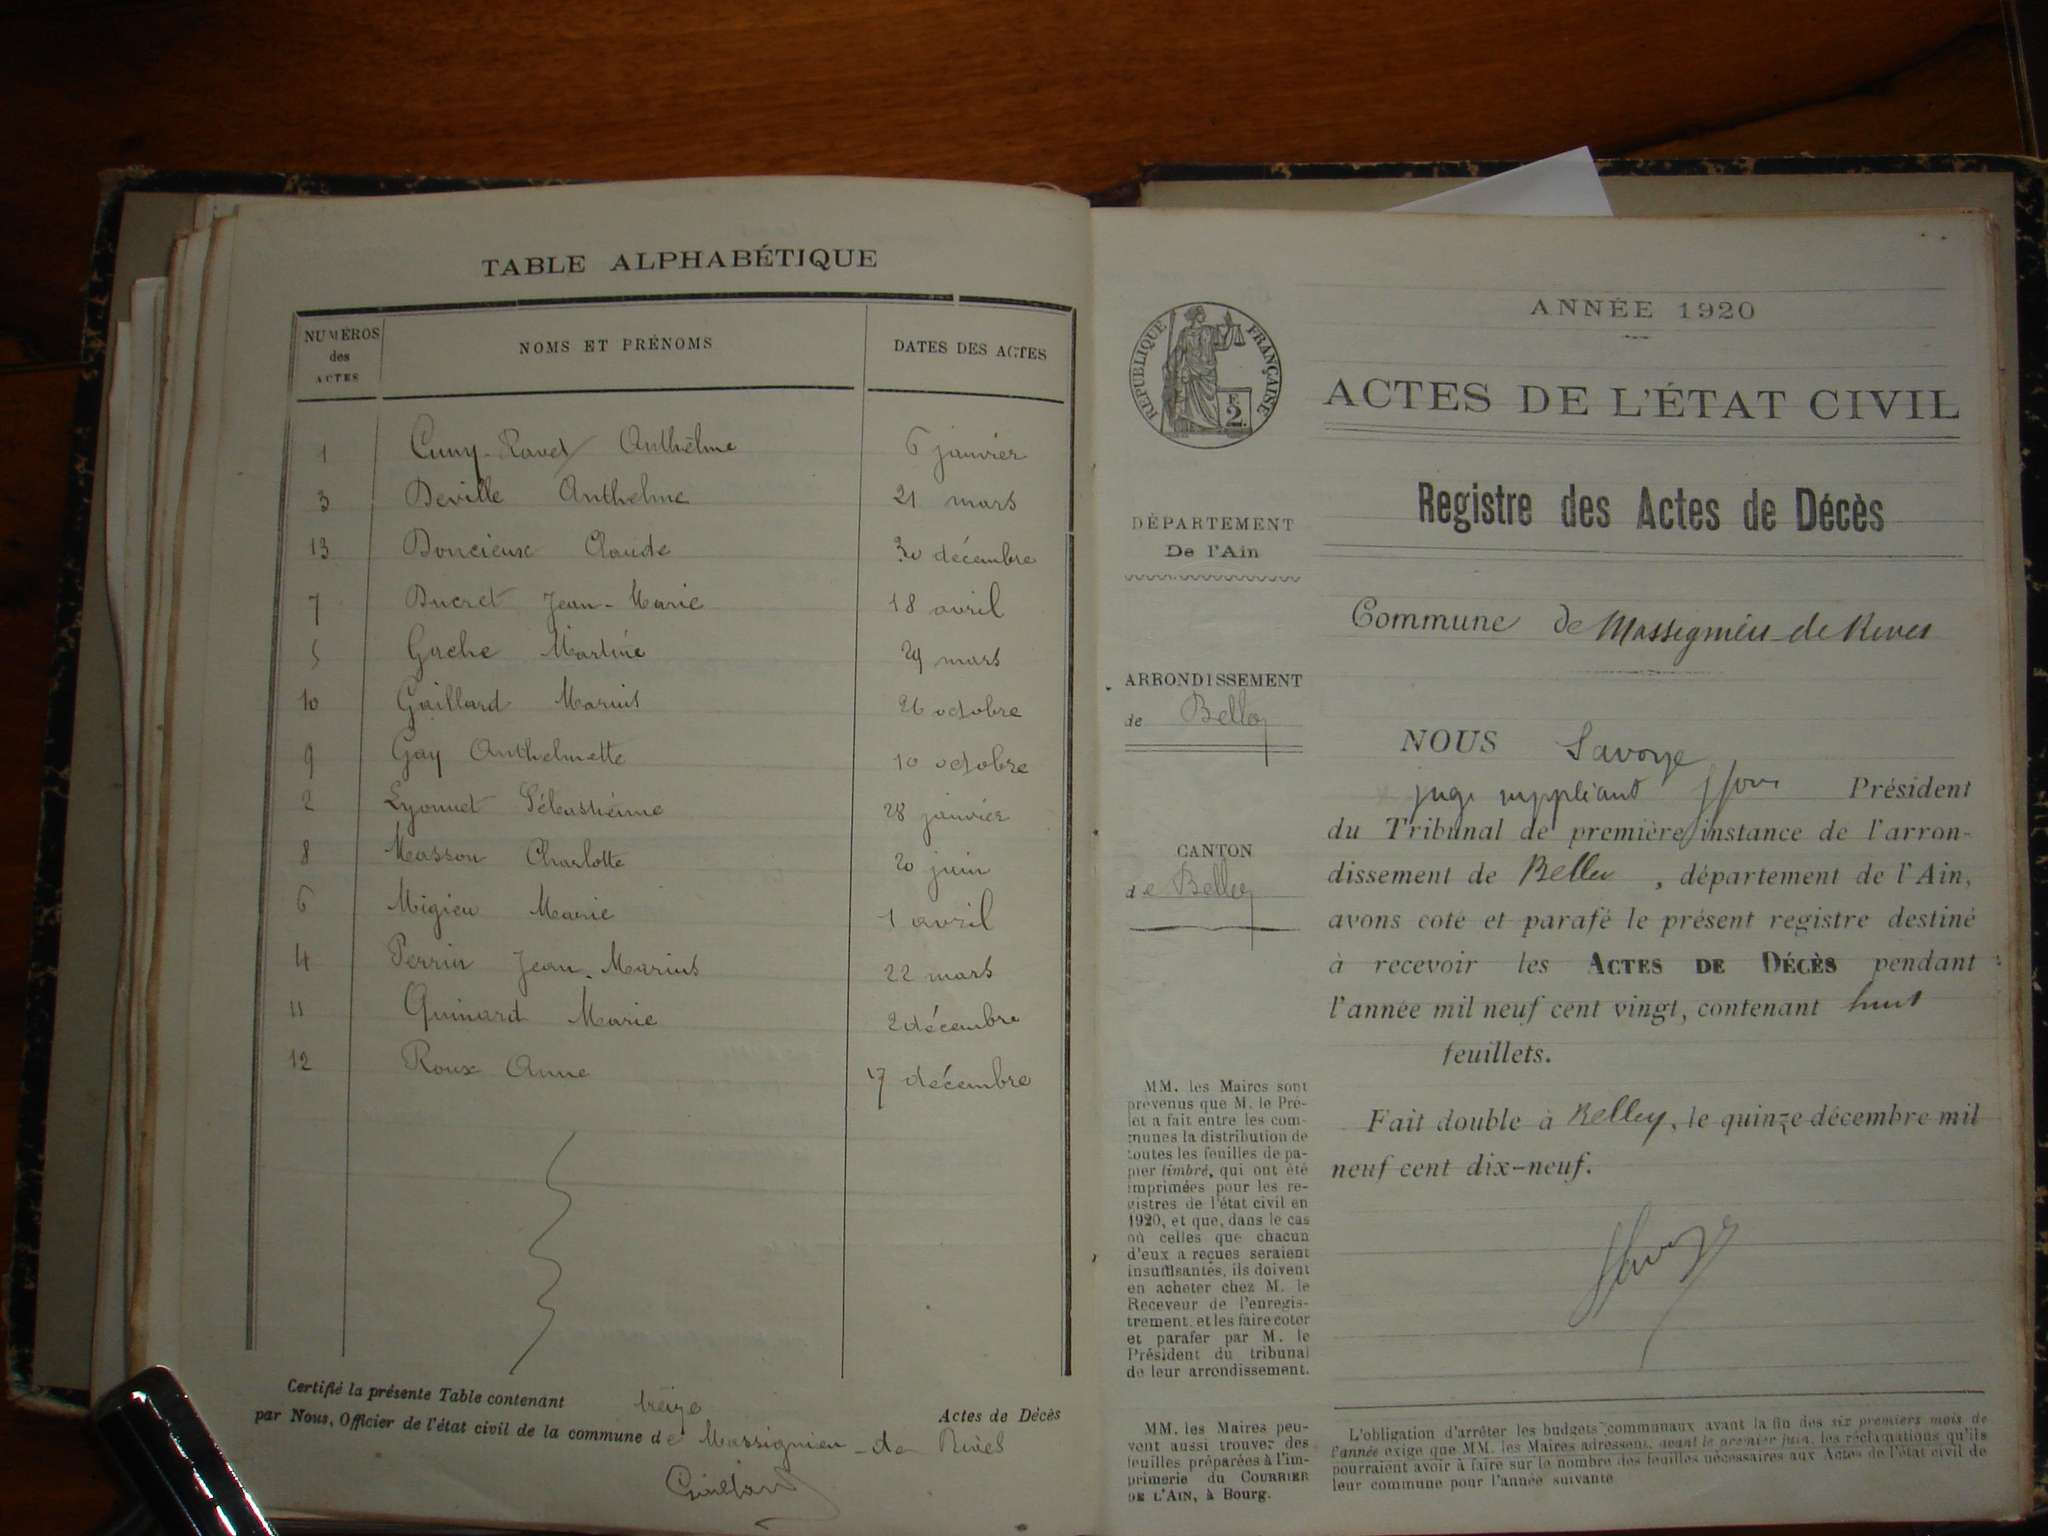 TABLE ALPHABÉTIQUE
NUMÉROS des ACTES NOMS ET PRÉNOMS DATES DES ACTES
1 Cuny-Ravet Anthelme 6 janvier
3 Deville Anthelme 21 mars
13 Doncieux Claude 30 décembre
7 Ducret Jean-Marie 18 avril
5 Gache Martine 29 mars
10 Gaillard Marius 26 octobre
9 Gay Anthelmette 10 octobre
2 Lyonnet Sébastienne 28 janvier
8 Masson Charlotte 20 juin
6 Migieu Marie 1 avril
4 Perrin Jean-Marius 22 mars
11 Quinard Marie 2 décembre
12 Roux Anne 17 décembre
Certifié la présente Table contenant treize Actes de Décès
par Nous, Officier de l'état civil de la commune de Massignieu-de Rives
Gaillard
RÉPUBLIQUE FRANÇAISE
2
DÉPARTEMENT
De l'Ain
ARRONDISSEMENT
de Belley
CANTON
de Belley
MM. les Maires sont
prévenus que M. le Pré-
fet a fait entre les com-
munes la distribution de
toutes les feuilles de pa-
pier timbré, qui ont été
imprimées pour les re-
gistres de l'état civil en
1920, et que, dans le cas
où celles que chacun
d'eux a reçues seraient
insuffisantes, ils doivent
en acheter chez M. le
Receveur de l'enregis-
trement, et les faire coter
et parafer par M. le
Président du tribunal
de leur arrondissement.
MM. les Maires peu-
vent aussi trouver des
feuilles préparées à l'im-
primerie du COURRIER
DE L'AIN, à Bourg.
ANNÉE 1920
ACTES DE L'ÉTAT CIVIL
Registre des Actes de Décès
Commune de Massignieu-de Rives
NOUS Savoye
juge suppléant Président
du Tribunal de première instance de l'arron-
dissement de Belley, département de l'Ain,
avons coté et parafé le présent registre destiné
à recevoir les ACTES DE DÉCÈS pendant
l'année mil neuf cent vingt, contenant huit
feuillets.
Fait double à Belley, le quinze décembre mil
neuf cent dix-neuf.
L'obligation d'arrêter les budgets communaux avant la fin des six premiers mois de
l'année exige que MM. les Maires adressent, avant le premier juin, les réclamations qu'ils
pourraient avoir à faire sur le nombre des feuilles nécessaires aux Actes de l'état civil de
leur commune pour l'année suivante